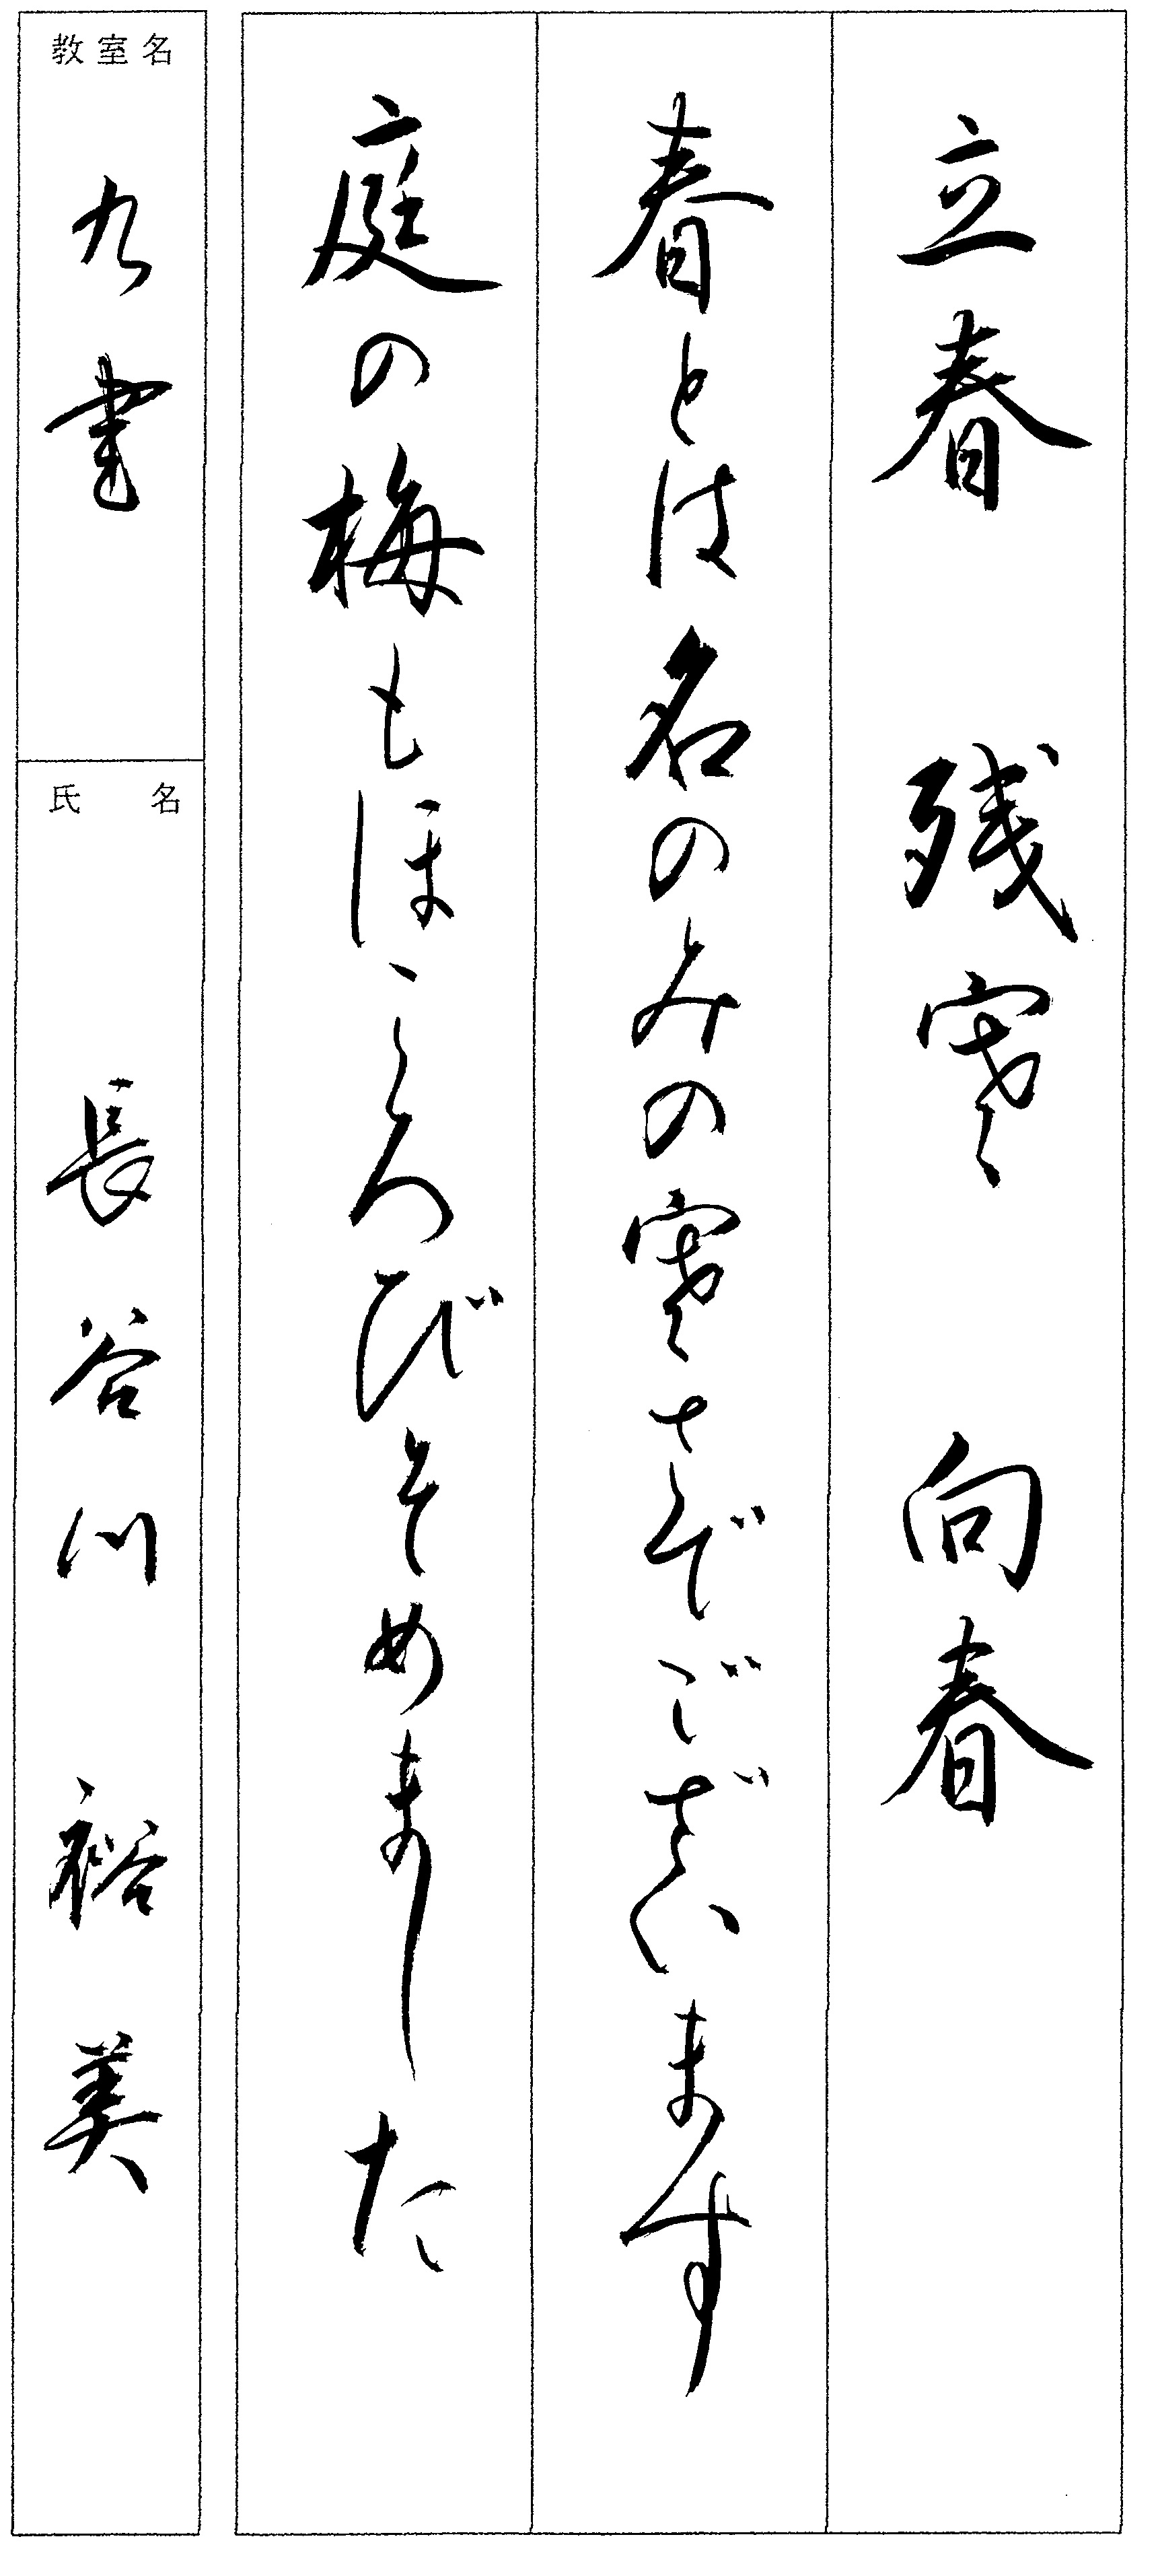 立春 残寒 向春
春とは名のみの寒さでございます
庭の梅もほころびそめました
教室名
九書
氏名
長谷川裕美